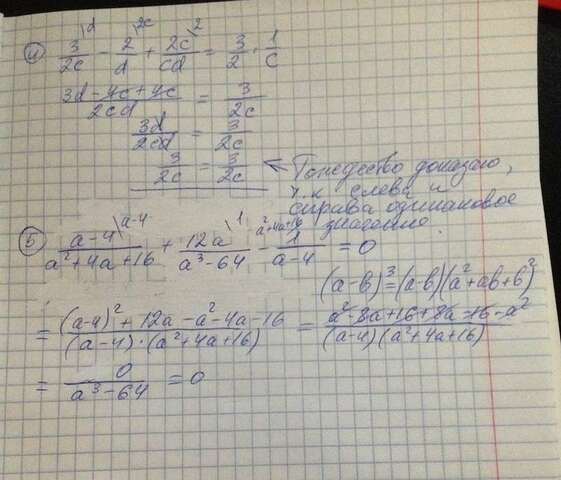 4) 3/2c \d - 2/d \2c + 2c/cd \2 = 3/2 · 1/c
(3d-4c+4c)/2cd = 3/2c
3d/2cd = 3/2c
3/2c = 3/2c ⇐ Тождество доказано,
т.к слева и
справа одинаковое
значение.
5) (a-4)/(a²+4a+16) \a-4 + 12a/(a³-64) \1 - 1/(a-4) \a²+4a+16 = 0
(a-b)³=(a-b)(a²+ab+b²)
= ((a-4)²+12a-a²-4a-16)/((a-4)·(a²+4a+16)) = (a²-8a+16+8a-16-a²)/((a-4)(a²+4a+16))
= 0/(a³-64) = 0